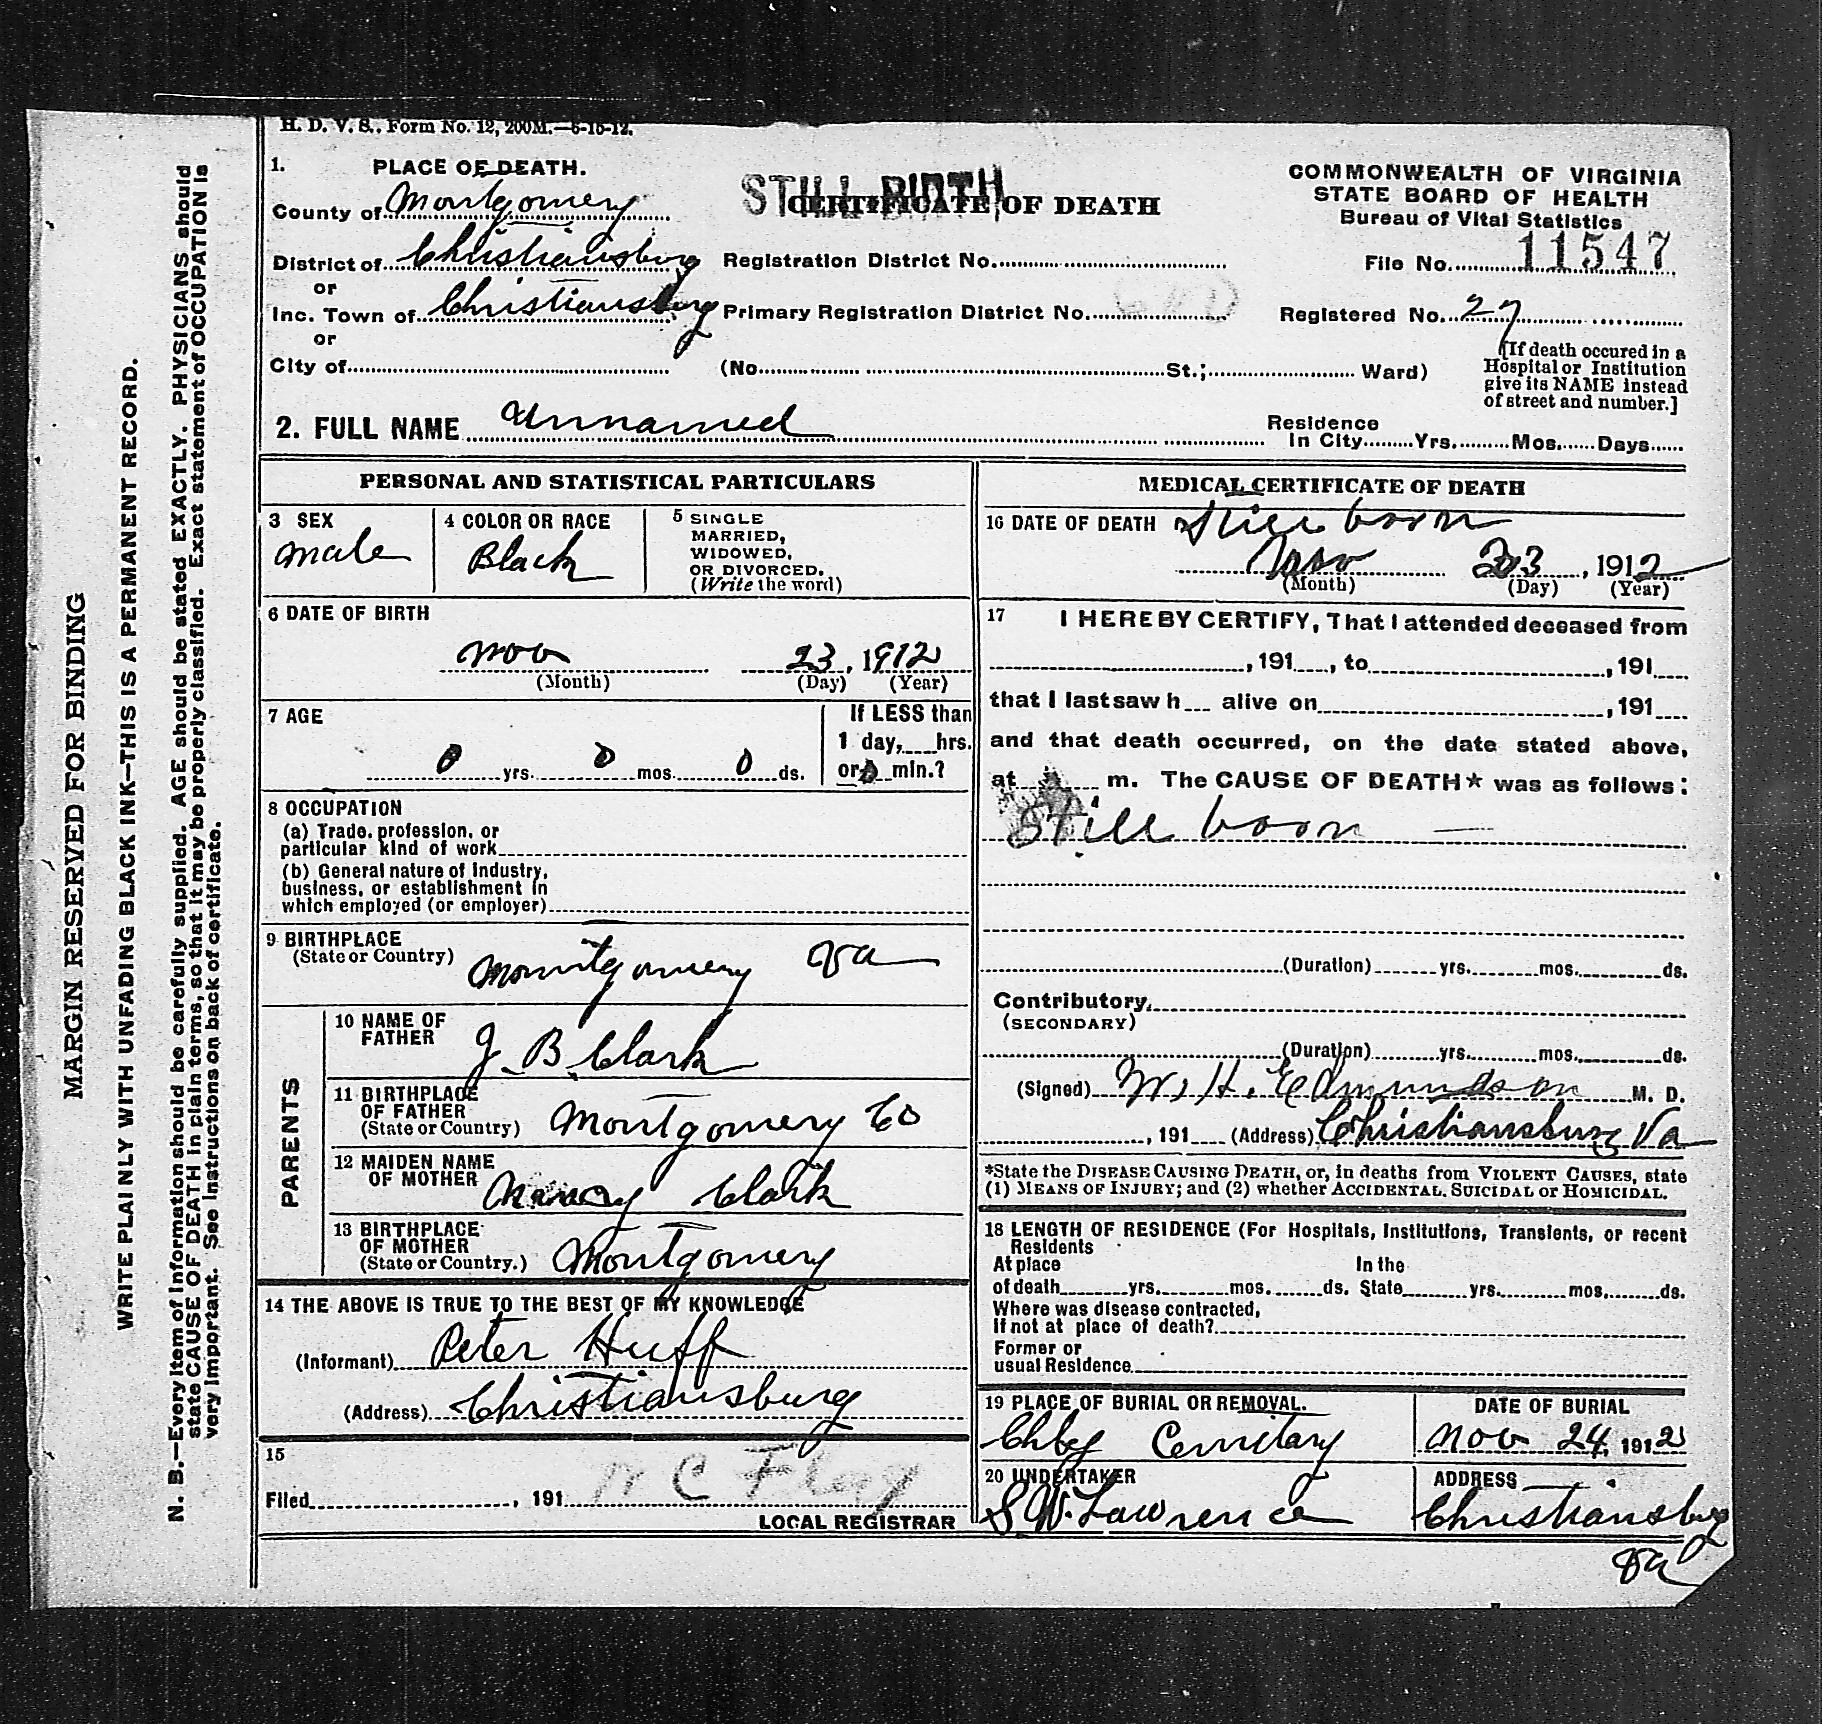 H. D. V. S., Form No. 12, 200M.—6-15-12.
1. PLACE OF DEATH.
County of Montgomery
District of Christiansburg
or
Inc. Town of Christiansburg
or
City of
STILL BIRTH
CERTIFICATE OF DEATH
Registration District No.
Primary Registration District No.
(No. St.; Ward)
COMMONWEALTH OF VIRGINIA
STATE BOARD OF HEALTH
Bureau of Vital Statistics
File No. 11547
Registered No. 27
[If death occured in a
Hospital or Institution
give its NAME instead
of street and number.]
2. FULL NAME Unnamed
Residence
In City Yrs. Mos. Days
PERSONAL AND STATISTICAL PARTICULARS
3 SEX
Male
4 COLOR OR RACE
Black
5 SINGLE
MARRIED,
WIDOWED,
OR DIVORCED.
(Write the word)
6 DATE OF BIRTH
Nov 23, 1912
(Month) (Day) (Year)
7 AGE
0 yrs. 0 mos. 0 ds.
If LESS than
1 day, hrs.
or 0 min.?
8 OCCUPATION
(a) Trade, profession, or
particular kind of work
(b) General nature of Industry,
business, or establishment in
which employed (or employer)
9 BIRTHPLACE
(State or Country) Montgomery Va
PARENTS
10 NAME OF
FATHER J. B. Clark
11 BIRTHPLACE
OF FATHER
(State or Country) Montgomery Co
12 MAIDEN NAME
OF MOTHER Nancy Clark
13 BIRTHPLACE
OF MOTHER
(State or Country.) Montgomery
14 THE ABOVE IS TRUE TO THE BEST OF MY KNOWLEDGE
(Informant) Peter Huff
(Address) Christiansburg
15
Filed , 191
LOCAL REGISTRAR
MEDICAL CERTIFICATE OF DEATH
16 DATE OF DEATH Still born
Nov 23, 1912
(Month) (Day) (Year)
17 I HEREBY CERTIFY, That I attended deceased from
, 191 , to , 191
that I last saw h alive on , 191
and that death occurred, on the date stated above,
at m. The CAUSE OF DEATH* was as follows:
Still born
(Duration) yrs. mos. ds.
Contributory
(SECONDARY)
(Duration) yrs. mos. ds.
(Signed) W. H. Edmundson M. D.
, 191 (Address) Christiansburg Va
*State the DISEASE CAUSING DEATH, or, in deaths from VIOLENT CAUSES, state
(1) MEANS OF INJURY; and (2) whether ACCIDENTAL, SUICIDAL or HOMICIDAL.
18 LENGTH OF RESIDENCE (For Hospitals, Institutions, Transients, or recent
Residents
At place In the
of death yrs. mos. ds. State yrs. mos. ds.
Where was disease contracted,
If not at place of death?
Former or
usual Residence
19 PLACE OF BURIAL OR REMOVAL.
Chbg Cemitary
DATE OF BURIAL
Nov 24, 1912
20 UNDERTAKER
S. W. Lawrence
ADDRESS
Christiansburg
Va
MARGIN RESERVED FOR BINDING
WRITE PLAINLY WITH UNFADING BLACK INK—THIS IS A PERMANENT RECORD.
N. B.—Every item of information should be carefully supplied. AGE should be stated EXACTLY. PHYSICIANS should
state CAUSE OF DEATH in plain terms, so that it may be properly classified. Exact statement of OCCUPATION is
very important. See instructions on back of certificate.